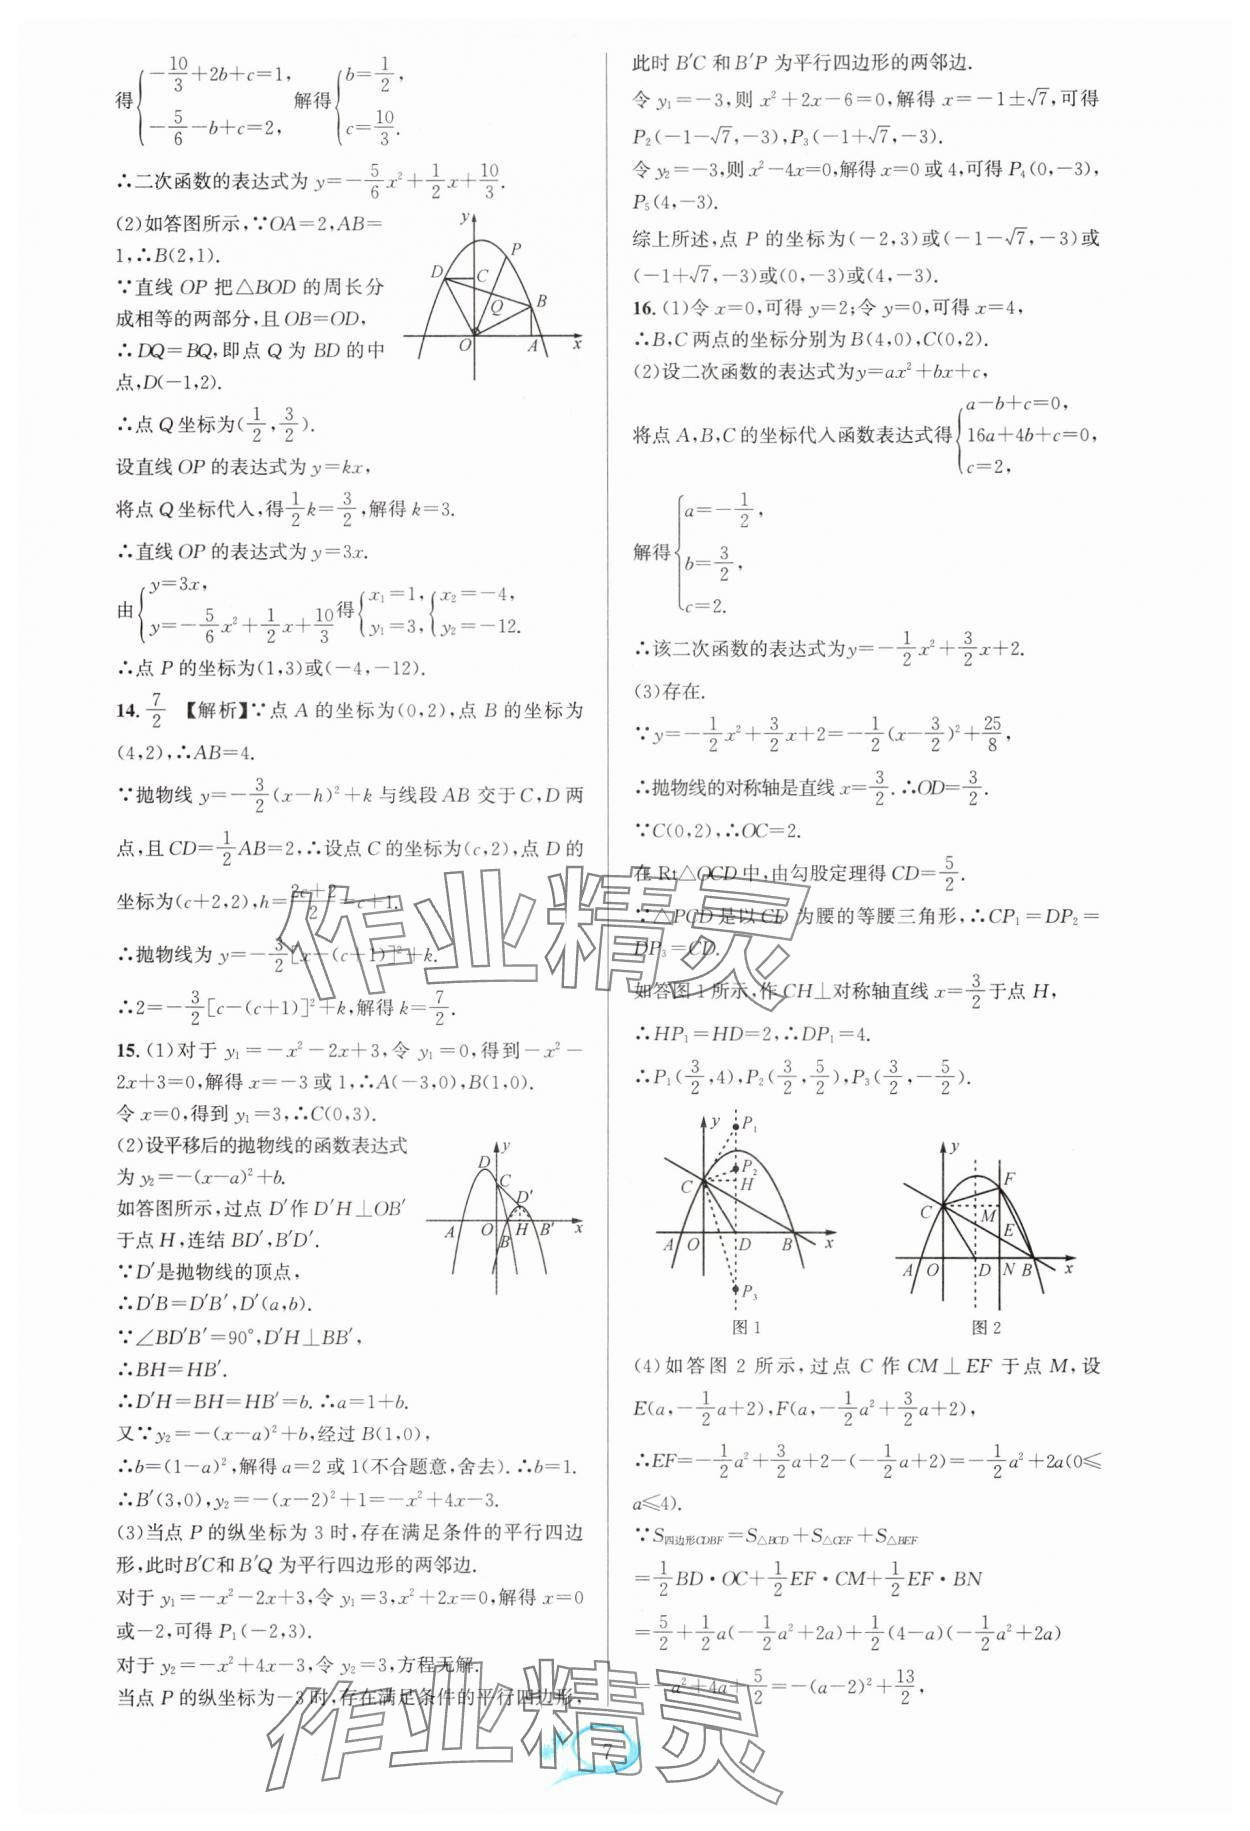 得{-10/3+2b+c=1, -5/6-b+c=2, 解得{b=1/2, c=10/3.
∴二次函数的表达式为 y=-5/6x²+1/2x+10/3.
(2)如答图所示,∵OA=2,AB=
1,∴B(2,1).
∵直线 OP 把△BOD 的周长分
成相等的两部分,且 OB=OD,
∴DQ=BQ,即点 Q 为 BD 的中
点,D(-1,2).
∴点 Q 坐标为(1/2,3/2).
设直线 OP 的表达式为 y=kx,
将点 Q 坐标代入,得1/2k=3/2,解得 k=3.
∴直线 OP 的表达式为 y=3x.
由{y=3x, y=-5/6x²+1/2x+10/3 得{x₁=1, y₁=3, {x₂=-4, y₂=-12.
∴点 P 的坐标为(1,3)或(-4,-12).
y
P
D
C
Q
B
O
A
x
14. 7/2 【解析】∵点 A 的坐标为(0,2),点 B 的坐标为
(4,2),∴AB=4.
∵抛物线 y=-3/2(x-h)²+k 与线段 AB 交于 C,D 两
点,且 CD=1/2AB=2,∴设点 C 的坐标为(c,2),点 D 的
坐标为(c+2,2),h=(2c+2)/2=c+1.
∴抛物线为 y=-3/2[x-(c+1)]²+k.
∴2=-3/2[c-(c+1)]²+k,解得 k=7/2.
15. (1)对于 y₁=-x²-2x+3,令 y₁=0,得到-x²-
2x+3=0,解得 x=-3 或 1,∴A(-3,0),B(1,0).
令 x=0,得到 y₁=3,∴C(0,3).
(2)设平移后的抛物线的函数表达式
为 y₂=-(x-a)²+b.
如答图所示,过点 D′作 D′H⊥OB′
于点 H,连结 BD′,B′D′.
∵D′是抛物线的顶点,
∴D′B=D′B′,D′(a,b).
∵∠BD′B′=90°,D′H⊥BB′,
∴BH=HB′.
∴D′H=BH=HB′=b. ∴a=1+b.
又∵y₂=-(x-a)²+b,经过 B(1,0),
∴b=(1-a)²,解得 a=2 或 1(不合题意,舍去). ∴b=1.
∴B′(3,0),y₂=-(x-2)²+1=-x²+4x-3.
y
D
C
D′
A
O
B
H
B′
x
(3)当点 P 的纵坐标为 3 时,存在满足条件的平行四边
形,此时B′C和 B′Q 为平行四边形的两邻边.
对于 y₁=-x²-2x+3,令 y₁=3,x²+2x=0,解得 x=0
或-2,可得 P₁(-2,3).
对于 y₂=-x²+4x-3,令 y₂=3,方程无解.
当点 P 的纵坐标为-3 时,存在满足条件的平行四边形,
此时 B′C 和 B′P 为平行四边形的两邻边.
令 y₁=-3,则 x²+2x-6=0,解得 x=-1±√7,可得
P₂(-1-√7,-3),P₃(-1+√7,-3).
令 y₂=-3,则 x²-4x=0,解得 x=0 或 4,可得 P₄(0,-3),
P₅(4,-3).
综上所述,点 P 的坐标为(-2,3)或(-1-√7,-3)或
(-1+√7,-3)或(0,-3)或(4,-3).
16. (1)令 x=0,可得 y=2;令 y=0,可得 x=4,
∴B,C 两点的坐标分别为 B(4,0),C(0,2).
(2)设二次函数的表达式为y=ax²+bx+c,
将点 A,B,C 的坐标代入函数表达式得{a-b+c=0, 16a+4b+c=0, c=2,
解得{a=-1/2, b=3/2, c=2.
∴该二次函数的表达式为y=-1/2x²+3/2x+2.
(3)存在.
∵y=-1/2x²+3/2x+2=-1/2(x-3/2)²+25/8,
∴抛物线的对称轴是直线 x=3/2. ∴OD=3/2.
∵C(0,2),∴OC=2.
在 Rt△OCD 中,由勾股定理得 CD=5/2.
∵△PCD 是以 CD 为腰的等腰三角形,∴CP₁=DP₂=
DP₃=CD.
如答图 1 所示,作 CH⊥对称轴直线 x=3/2于点 H,
∴HP₁=HD=2,∴DP₁=4.
∴P₁(3/2,4),P₂(3/2,5/2),P₃(3/2,-5/2).
y
P₁
P₂
C
H
A
O
D
B
x
P₃
图 1
y
F
C
M
E
A
O
D
N
B
x
图 2
(4)如答图 2 所示,过点 C 作 CM⊥EF 于点 M,设
E(a,-1/2a+2),F(a,-1/2a²+3/2a+2),
∴EF=-1/2a²+3/2a+2-(-1/2a+2)=-1/2a²+2a(0≤
a≤4).
∵S四边形CDBF=S△BCD+S△CEF+S△BEF
=1/2BD·OC+1/2EF·CM+1/2EF·BN
=5/2+1/2a(-1/2a²+2a)+1/2(4-a)(-1/2a²+2a)
=-a²+4a+5/2=-(a-2)²+13/2,
作业精灵
作业精灵
7